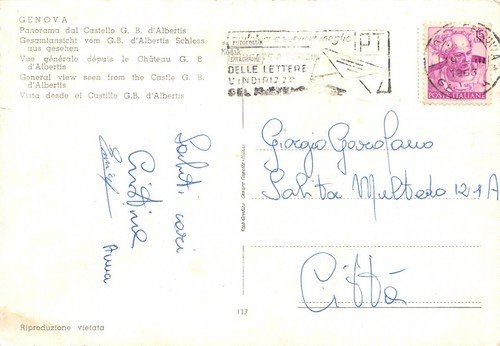 GENOVA
Panorama dal Castello G. B. d'Albertis
Gesamtansicht vom G.B. d'Albertis Schloss
aus gesehen
Vue générale dépuis le Château G. B.
d'Albertis
General view seen from the Castle G. B.
d'Albertis
Vista desde el Castillo G.B. d'Albertis
DELLE LETTERE
L'INDIRIZZO
DEL
1963
POSTE ITALIANE
Saluti cari
Cristina
Anna
Giorgio Garofano
Salita Multedo 121A
Città
117
Riproduzione vietata